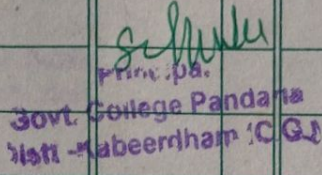 Principa.
Govt. College Pandaria
Distt -Kabeerdham (C.G.)